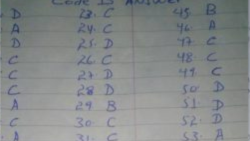 Code B Answer
D 23. C 45. B
A 24. C 46. A
D 25. D 47. C
C 26. C 48. C
C 27. D 49. C
C 28. D 50. D
A 29. B 51. D
C 30. C 52. D
A 31. C 53. A